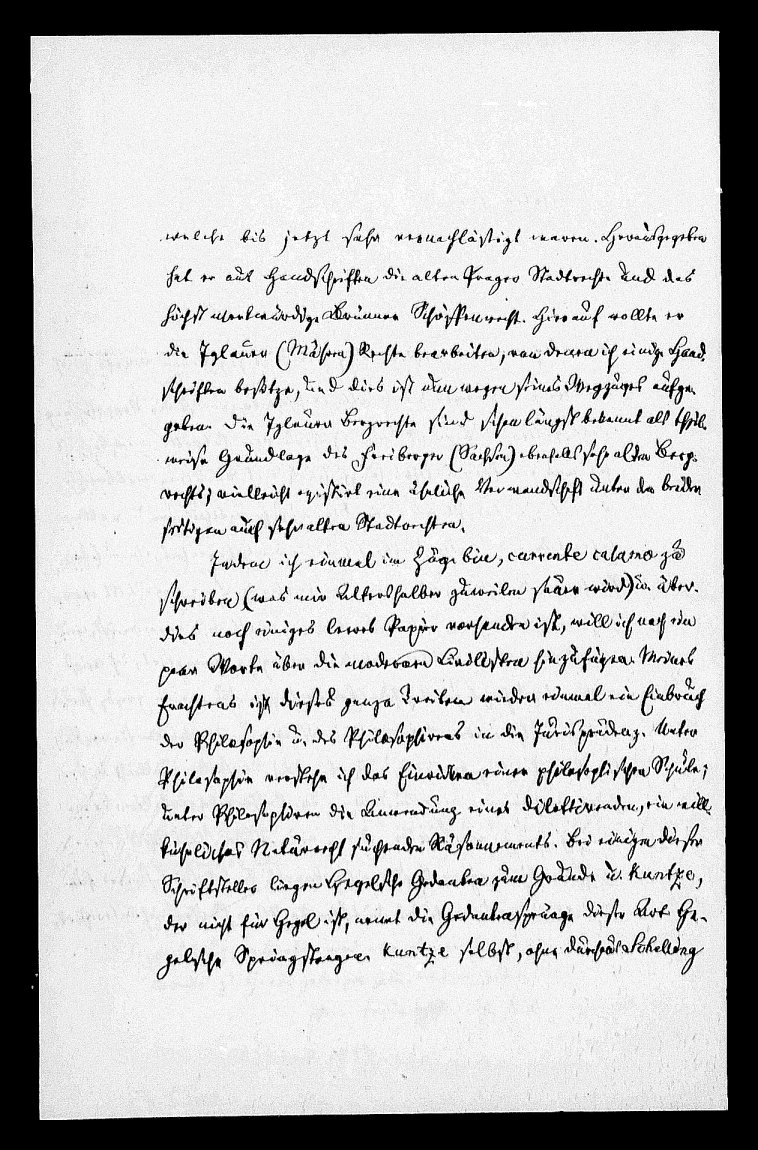 welche bis jetzt sehr vernachlässigt waren. Herausgegeben
hat er aus Handschriften die alten Prager Stadtrechte und das
höchst merkwürdige Brünner Schöffenrecht. Hierauf wollte er
die Iglauer (Mähren) Rechte bearbeiten, von denen ich einige Hand-
schriften besitze, und dies ist nun wegen seines Wegzuges aufge-
geben. Die Iglauer Bergrechte sind schon längst bekannt als theil-
weise Grundlage des Freiberger (Sachsen) ebenfalls sehr alten Berg-
rechts; vielleicht existirt eine ähnliche Verwandschaft unter den beider-
seitigen auch sehr alten Stadtrechten.
Indem ich einmal im Zuge bin, currente calamo zu
schreiben (was mir Altershalber zuweilen wird) u. über-
dies noch einiges leeres Papier vorhanden ist, will ich noch ein
paar Worte über die modernen Civilisten hinzufügen. Meines
Erachtens ist dieses ganze Treiben wieder einmal ein Einbruch
der Philosophie u. des Philosophirens in die Jurisprudenz. Unter
Philosophie verstehe ich das Einwirken einer philosophischen Schule;
unter Philosophiren die Anwendung eines dilettirenden, ein will-
kührliches Naturrecht suchenden Räsonnements. Bei einigen dieser
Schriftsteller liegen Hegelsche Gedanken zum Grunde u. Kuntze,
der nicht für Hegel ist, nennt die Gedankensprünge dieser Art He-
gelsche Springstangen. Kuntze selbst, ohne durchaus Schelling